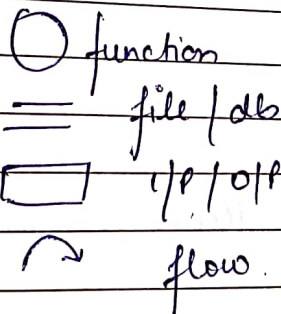 function
file / db
I/P / O/P
flow.